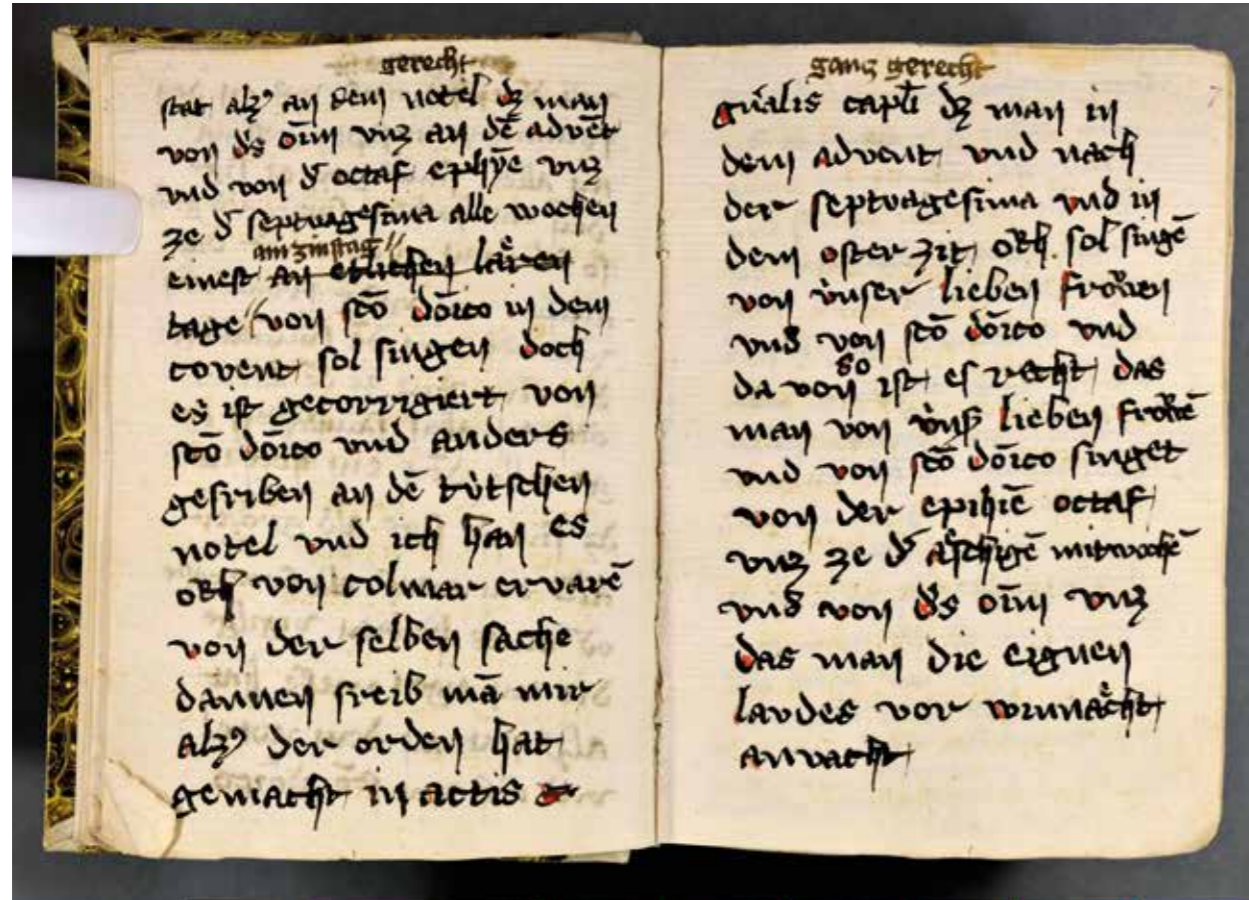 gerecht
stat alz⁹ an dem notel dz man
von d's oīm vnz an dē advēt
vnd von d' octaf ephȳe vnz
ze d' septuagesima alle wochen
am zinstag
einest an etlichen lären
tage von scō dōīco in dem
covent sol singen doch
es ist gecorrigiert von
scō dōīco vnd anders
gesriben an dē tùtschen
notel vnd ich han es
och von colmar ervarē
von der selben sache
dannen sreib mā mir
alz⁹ der orden hat
gemacht in actis
ganz gerecht
7
gn̄alis capl̄i dz man in
dem advent vnd nach
der septvagesima vnd in
dem oster zit och sol singē
von ùnser lieben frowen
vnd von scō dōīco vnd
so
da von ist es recht das
man von ùnß lieben frowē
vnd von scō dōīco singet
von der epihiē octaf
vnz ze d' äschigē mitwochē
vnd von d's oīm vnz
das man die eignen
laudes vor winnächt
anvacht